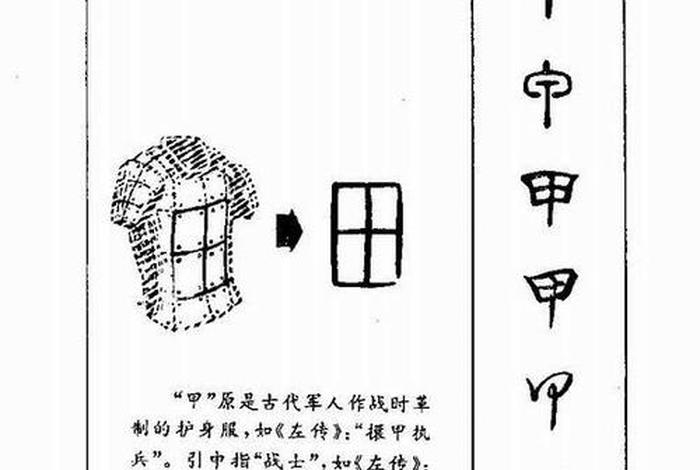 “甲”原是古代军人作战时革
制的护身服，如《左传》：“擐甲执
兵”。引申指“战士”，如《左传》：
甲
甲
甲